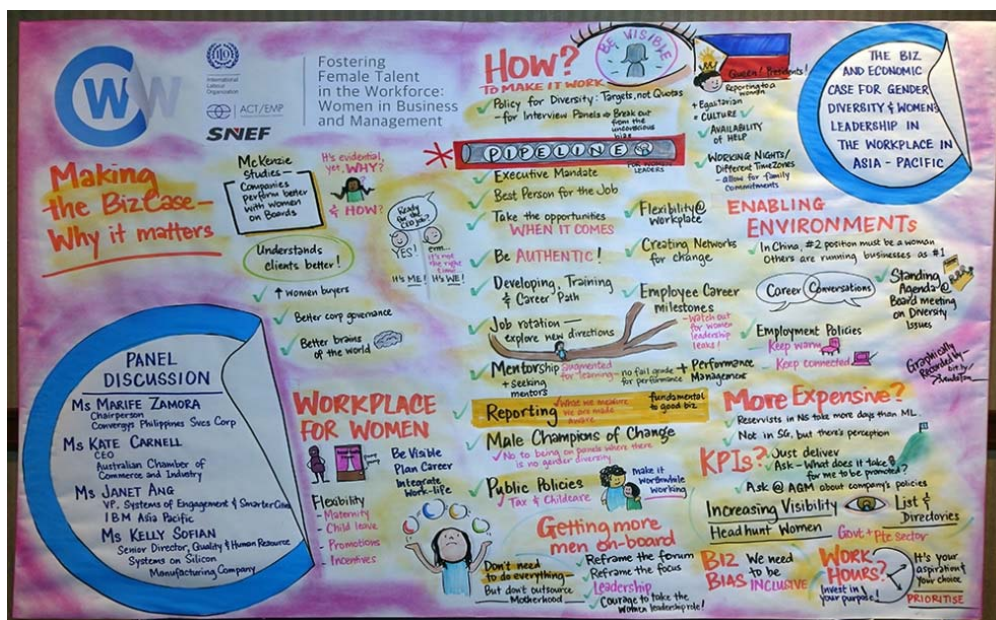 CWW
International
Labour
Organization
ACT/EMP
SNEF
Fostering
Female Talent
in the Workforce:
Women in Business
and Management
Making
the BizCase—
Why it matters
McKenzie
Studies—
Companies
perform better
with women
on Boards
It's evidential,
yet, WHY?
& HOW?
Understands
clients better!
↑ women buyers
Better corp governance
Better brains
of the world
Ready
for the
CEO job?
YES!
erm...
it's not
the right
time...
It's ME!
It's WE!
PANEL
DISCUSSION
Ms MARIFE ZAMORA
Chairperson
Convergys Philippines Svcs Corp
Ms KATE CARNELL
CEO
Australian Chamber of
Commerce and Industry
Ms JANET ANG
VP, Systems of Engagement & Smarter Cities
IBM Asia Pacific
Ms KELLY SOFIAN
Senior Director, Quality & Human Resource
Systems on Silicon
Manufacturing Company
WORKPLACE
FOR WOMEN
Be Visible
Plan Career
Integrate
Work-life
Flexibility
- Maternity
- Child leave
- Promotions
- Incentives
HOW?
TO MAKE IT WORK
BE VISIBLE
Policy for Diversity: Targets, not Quotas
- for Interview Panels → Break out
from the
unconscious
bias
* PIPELINE
FOR WOMEN
LEADERS
Executive Mandate
Best Person for the Job
Take the opportunities
WHEN IT COMES
Be AUTHENTIC!
Developing, Training
& Career Path
Job rotation—
explore new directions
Flexibility@
Workplace
Creating Networks
for change
Employee Career
milestones
- Watch out
for women
leadership
leaks!
Mentorship
+ Seeking
mentors
Augmented
for learning
— no fail grade
for performance
+ Performance
Management
Reporting
What we measure
we are made
aware
fundamental
to good biz
Male Champions of Change
No to being on panels where there
is no gender diversity
Public Policies
Tax & Childcare
Make it
worthwhile
working
Getting more
men on-board
Don't need
to do everything—
But don't outsource
Motherhood
Reframe the forum
Reframe the focus
Leadership
Courage to take the
women leadership role!
Queen! Presidents!
Reporting to a
woman
+ Egalitarian
CULTURE
AVAILABILITY
OF HELP
WORKING NIGHTS/
Different TimeZones
- allow for family
commitments
THE BIZ
AND ECONOMIC
CASE FOR GENDER
DIVERSITY & WOMENS
LEADERSHIP IN
THE WORKPLACE IN
ASIA - PACIFIC
ENABLING
ENVIRONMENTS
In China, #2 position must be a woman
Others are running businesses as #1
Career Conversations
Standing
Agenda @
Board meeting
on Diversity
Issues
Employment Policies
Keep warm
Keep connected
Graphically
Recorded by—
More Expensive?
Reservists in NS take more days than ML.
Not in SG, but there's perception
KPIs?
Just deliver
Ask - What does it take
for me to be promoted?
Ask @ AGM about company's policies
Increasing Visibility
List &
Directories
Headhunt Women
Govt + Pte sector
BIZ
BIAS
We need
to be
INCLUSIVE
WORK
HOURS?
Invest in
your purpose!
It's your
aspiration &
your choice
PRIORITISE